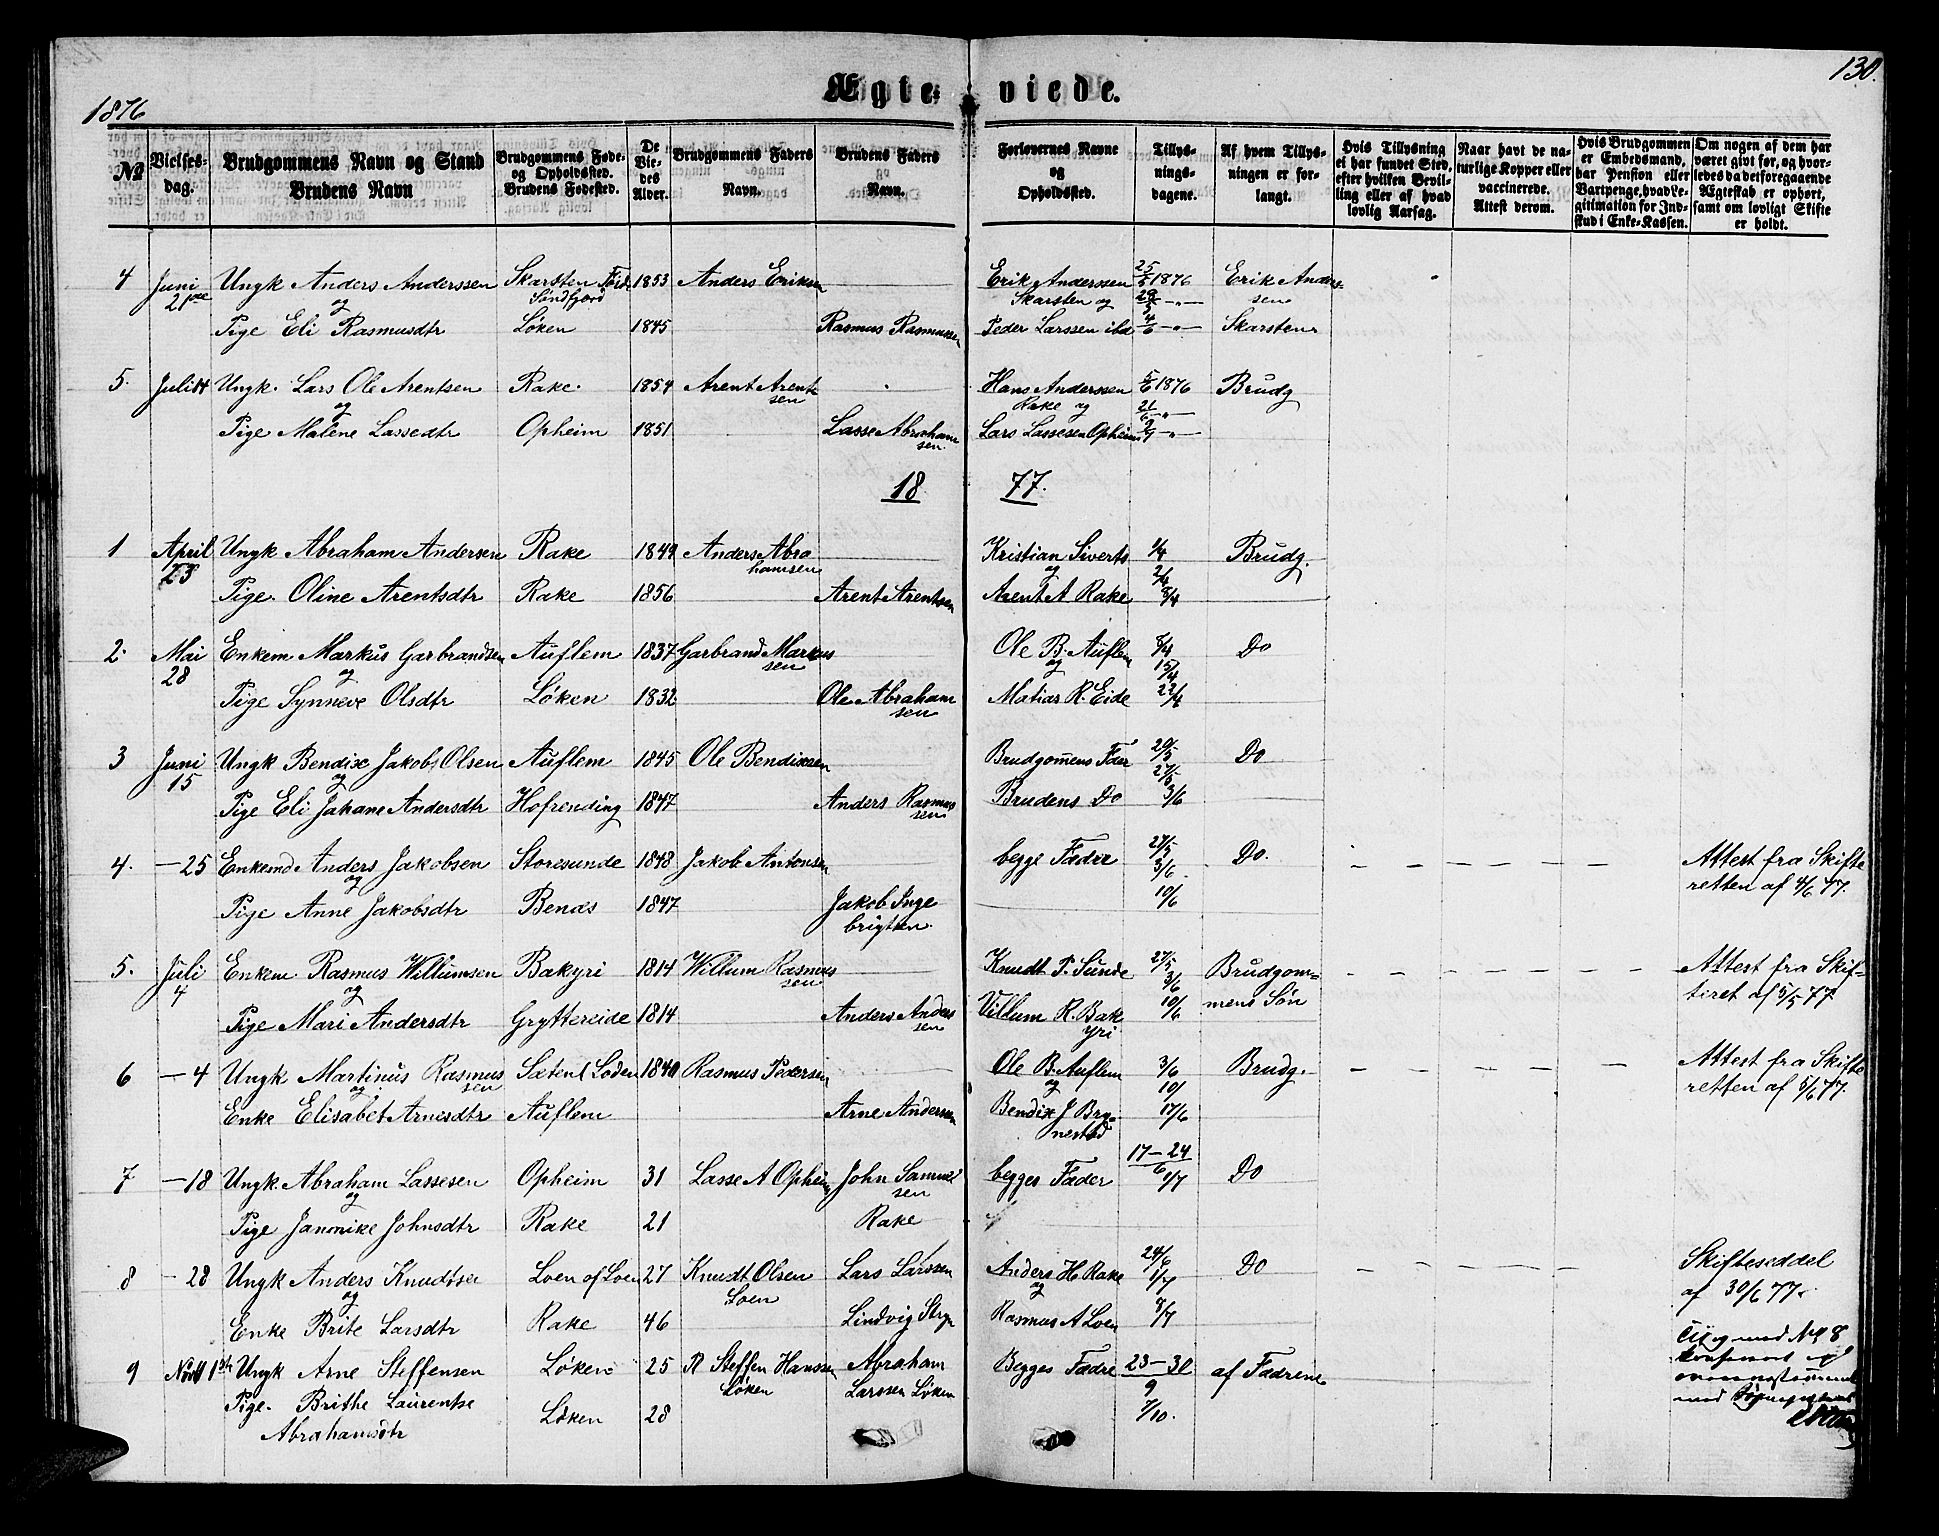 1876
Ægteviede.
130.
No
Vielses-dag.
Brudgommens Navn og Stand
Brudens Navn
Brudgommens Føde- og Opholdssted.
Brudens Fødested.
De Viedes Alder.
Brudgommens Faders Navn.
Brudens Faders Navn.
Forlovernes Navne og Opholdssted.
Tillysningsdagene.
Af hvem Tillysningen er forlangt.
Hvis Tillysning ei har fundet Sted, efter hvilken Bevilling eller af hvad lovlig Aarsag.
Naar havt de naturlige Kopper eller vaccinerede. Attest derom.
Hvis Brudgommen er Embedsmand, har Pension eller Vartpenge, hvad Legitimation for Indskud i Enke-Kassen.
Om nogen af dem har været givt før, og hvorledes da det foregaaende Ægteskab er ophørt, samt om lovligt Skifte er holdt.
4 Juni Ungk Anders Anderssen Skarsten Førde 1853 Anders Eriksen Erik Anderssen 25/5 1876 Erik Anders-
21 og Søndfjord Skarsten og 29/5 -"- sen
Pige Eli Rasmusdtr Løken 1845 Rasmus Rasmussen Peder Larssen ibd 4/6 -"- Skarsten
5. Juli 14 Ungk. Lars Ole Arentsen Rake. 1854 Arent Arent Hans Anderssen 5/6 1876 Brudg
og sen Rake og 21/6 -"-
Pige Malene Lassedtr Opheim 1851 Lasse Abraham Lars Lassesen Opheim -"-
sen
18 77.
1 April Ungk Abraham Andersen Rake 1849 Anders Abra Kristian Siverts 1/4 Brudg.
23 hamsen og 2/4
Pige. Oline Arentsdtr Rake 1856 Arent Arentsen Arent A Rake 8/4
2. Mai Enkem Markus Garbrandsen Auflem 1837 Garbrand Markus Ole B. Auflem 8/4 Do
28 og sen og 15/4
Pige Synneve Olsdtr Løken 1832 Ole Abraham Matias R. Eide 22/4
sen
3 Juni Ungk Bendix Jakobs Olsen Auflem 1845 Ole Bendixsen Brudgomens Fder 20/5 Do
15 og 27/5
Pige Eli Jakane Andersdtr Hofrending 1847 Anders Rasmus Brudens Do 3/6
sen
4. - 25 Enkemd Anders Jakobsen Storesunde 1848 Jakob Antonsen begge Fæder 27/5 Do. Attest fra Skifte
og 3/6 retten af 4/6 77.
Pige Anne Jakobsdtr Benæs 1847 Jakob Inge 10/6
brigtsen.
5. Juli Enkem Rasmus Willumsen Bakyri 1814 Willum Rasmus Knudt P. Sunde 27/5 Brudgom= Attest fra Skif-
4 og sen 3/6 tiret af 5/5 77
Pige Mari Andersdtr Gryttereide 1814 Anders Anders Villum R. Bak 10/6 mens Søn
sen yri
6 - 4 Ungk Martinus Rasmus Sæten Loden 1840 Rasmus Pedersen Ole B. Auflem 3/6 Brudg. Attest fra Skifte
og sen og 10/ retten af 5/6 77.
Enke Elisabet Arnesdtr Auflem Arne Andersen Bendix J Bry- 17/6
nestad
7 - 18 Ungk. Abraham Lassesen Opheim 31 Lasse A Opheim John Samuel begges Fæder 17-24/6 Do
og sen 1/7
Pige Jannike Johnsdtr Rake 21 Rake
8 - 28 Ungk Anders Knudsen Loen of Loen 27 Knudt Olsen Lars Larssen Anders H. Rake 24/6 Do Skifteseddel
og Loen og 1/7 af 30/6 77.
Enke Brite Larsdtr Rake 46 Lindvig Stryn Rasmus A Loen 8/7
9 Novb 1ste Ungk Arne Steffensen Løken 25 R Steffen Hanssen Abraham Begges Fædre 23-30 af Fædrene
Løken Larssen Løken 9
Pige. Brithe Laurentse Løken 28 7/10.
Abrahamsdtr